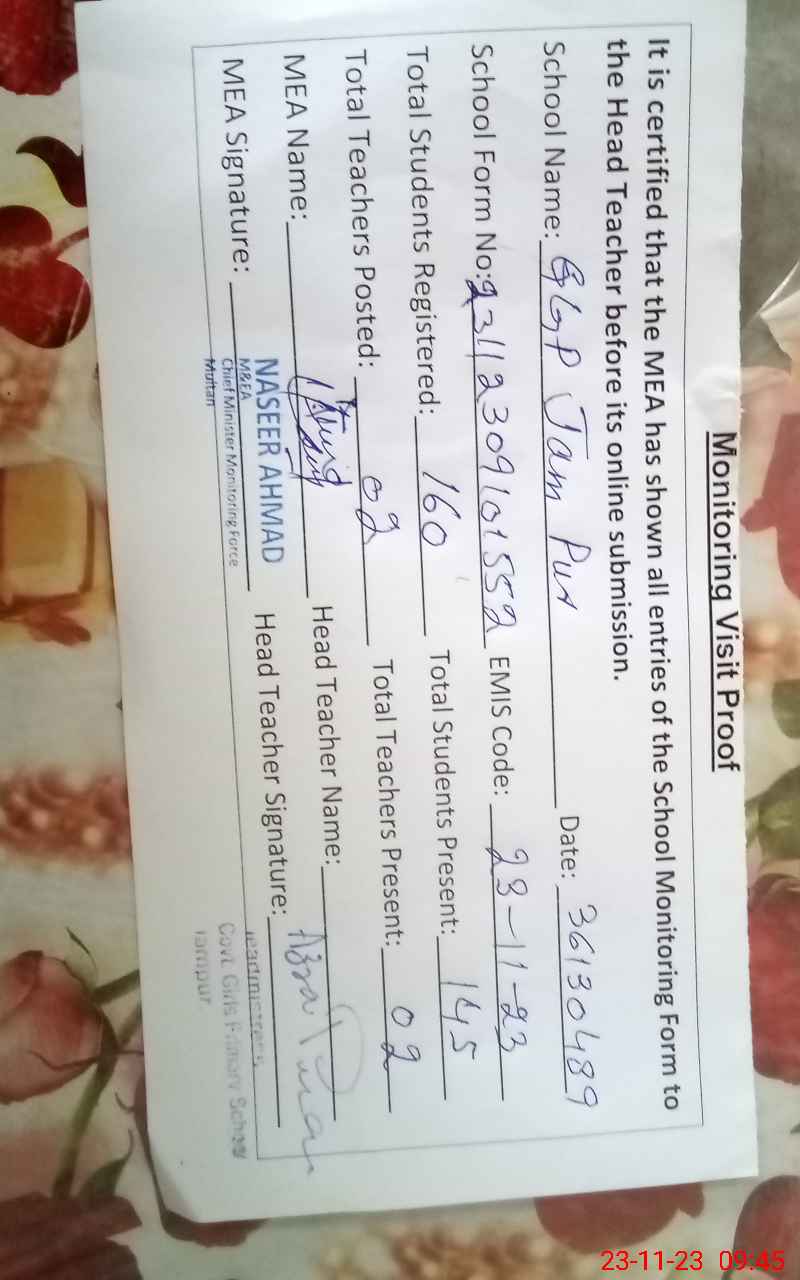 Monitoring Visit Proof
It is certified that the MEA has shown all entries of the School Monitoring Form to
the Head Teacher before its online submission.
School Name: GGP Jam Pur Date: 36130489
School Form No: 23112309101552 EMIS Code: 23-11-23
Total Students Registered: 160 Total Students Present: 145
Total Teachers Posted: 02 Total Teachers Present: 02
MEA Name: Head Teacher Name: Azra
MEA Signature: Head Teacher Signature:
NASEER AHMAD
M&EA
Chief Minister Monitoring Force
Multan
Headmistress
Govt. Girls Primary School
Jampur
23-11-23 09:45